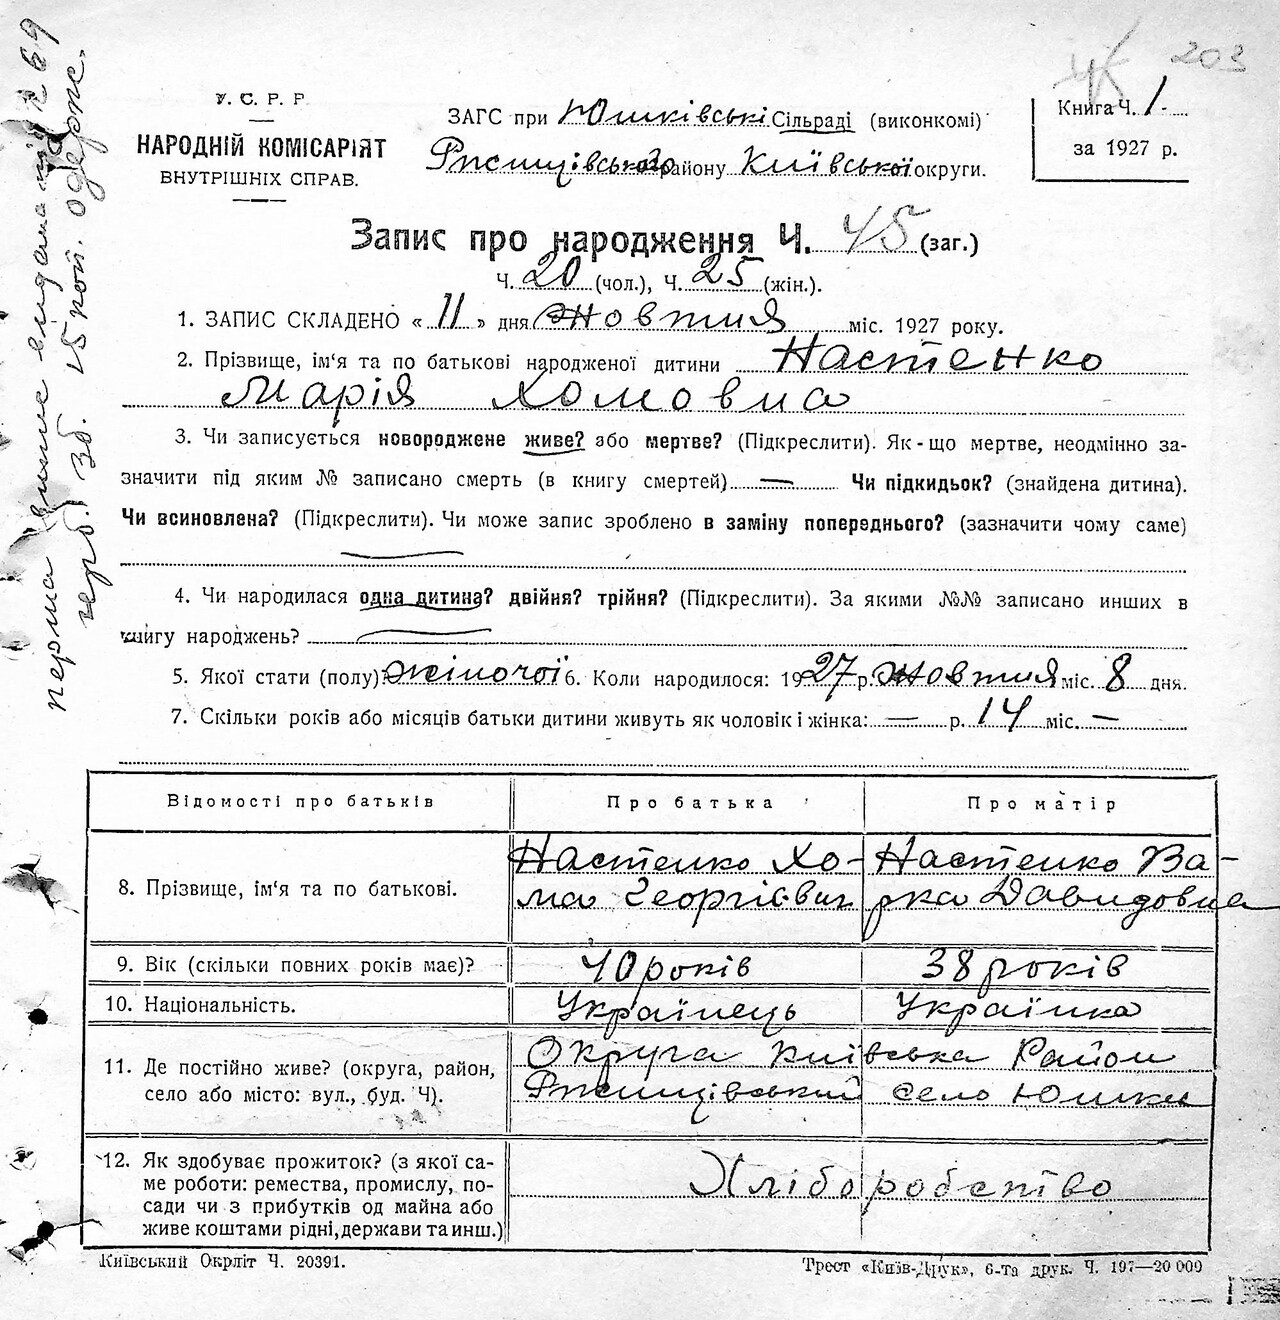 203
У. С. Р. Р.
НАРОДНІЙ КОМІСАРІЯТ
ВНУТРІШНІХ СПРАВ.
ЗАГС при Юшківські Сільраді (виконкомі)
Ржищівського району Київської округи.
Книга Ч. 1
за 1927 р.
Запис про народження Ч. 45 (заг.)
Ч. 20 (чол.), Ч. 25 (жін.).
1. ЗАПИС СКЛАДЕНО « 11 » дня Жовтня міс. 1927 року.
2. Прізвище, ім'я та по батькові народженої дитини Настенко
Марія Хомовна
3. Чи записується новороджене живе? або мертве? (Підкреслити). Як-що мертве, неодмінно за-
значити під яким № записано смерть (в книгу смертей) — Чи підкидьок? (знайдена дитина).
Чи всиновлена? (Підкреслити). Чи може запис зроблено в заміну попереднього? (зазначити чому саме)
4. Чи народилася одна дитина? двійня? трійня? (Підкреслити). За якими №№ записано инших в
книгу народжень?
5. Якої стати (полу)? жіночої 6. Коли народилося: 1927 р. жовтня міс. 8 дня.
7. Скільки років або місяців батьки дитини живуть як чоловік і жінка: — р. 14 міс. —
Відомості про батьків Про батька Про матір
8. Прізвище, ім'я та по батькові.
Настенко Хо-
ма Георгієвич
Настенко Ва-
рка Давидовна
9. Вік (скільки повних років має)? 40 років 38 років
10. Національність. Українець Українка
11. Де постійно живе? (округа, район,
село або місто: вул., буд. Ч).
Округа Київська Район
Ржищівський село Юшки
12. Як здобуває прожиток? (з якої са-
ме роботи: ремества, промислу, по-
сади чи з прибутків од майна або
живе коштами рідні, держави та инш.)
Хліборобство
Київський Окрліт Ч. 20391.
Трест «Київ-Друк», 6-та друк. Ч. 197—20 000
герб. зб. 15 коп. одерж.